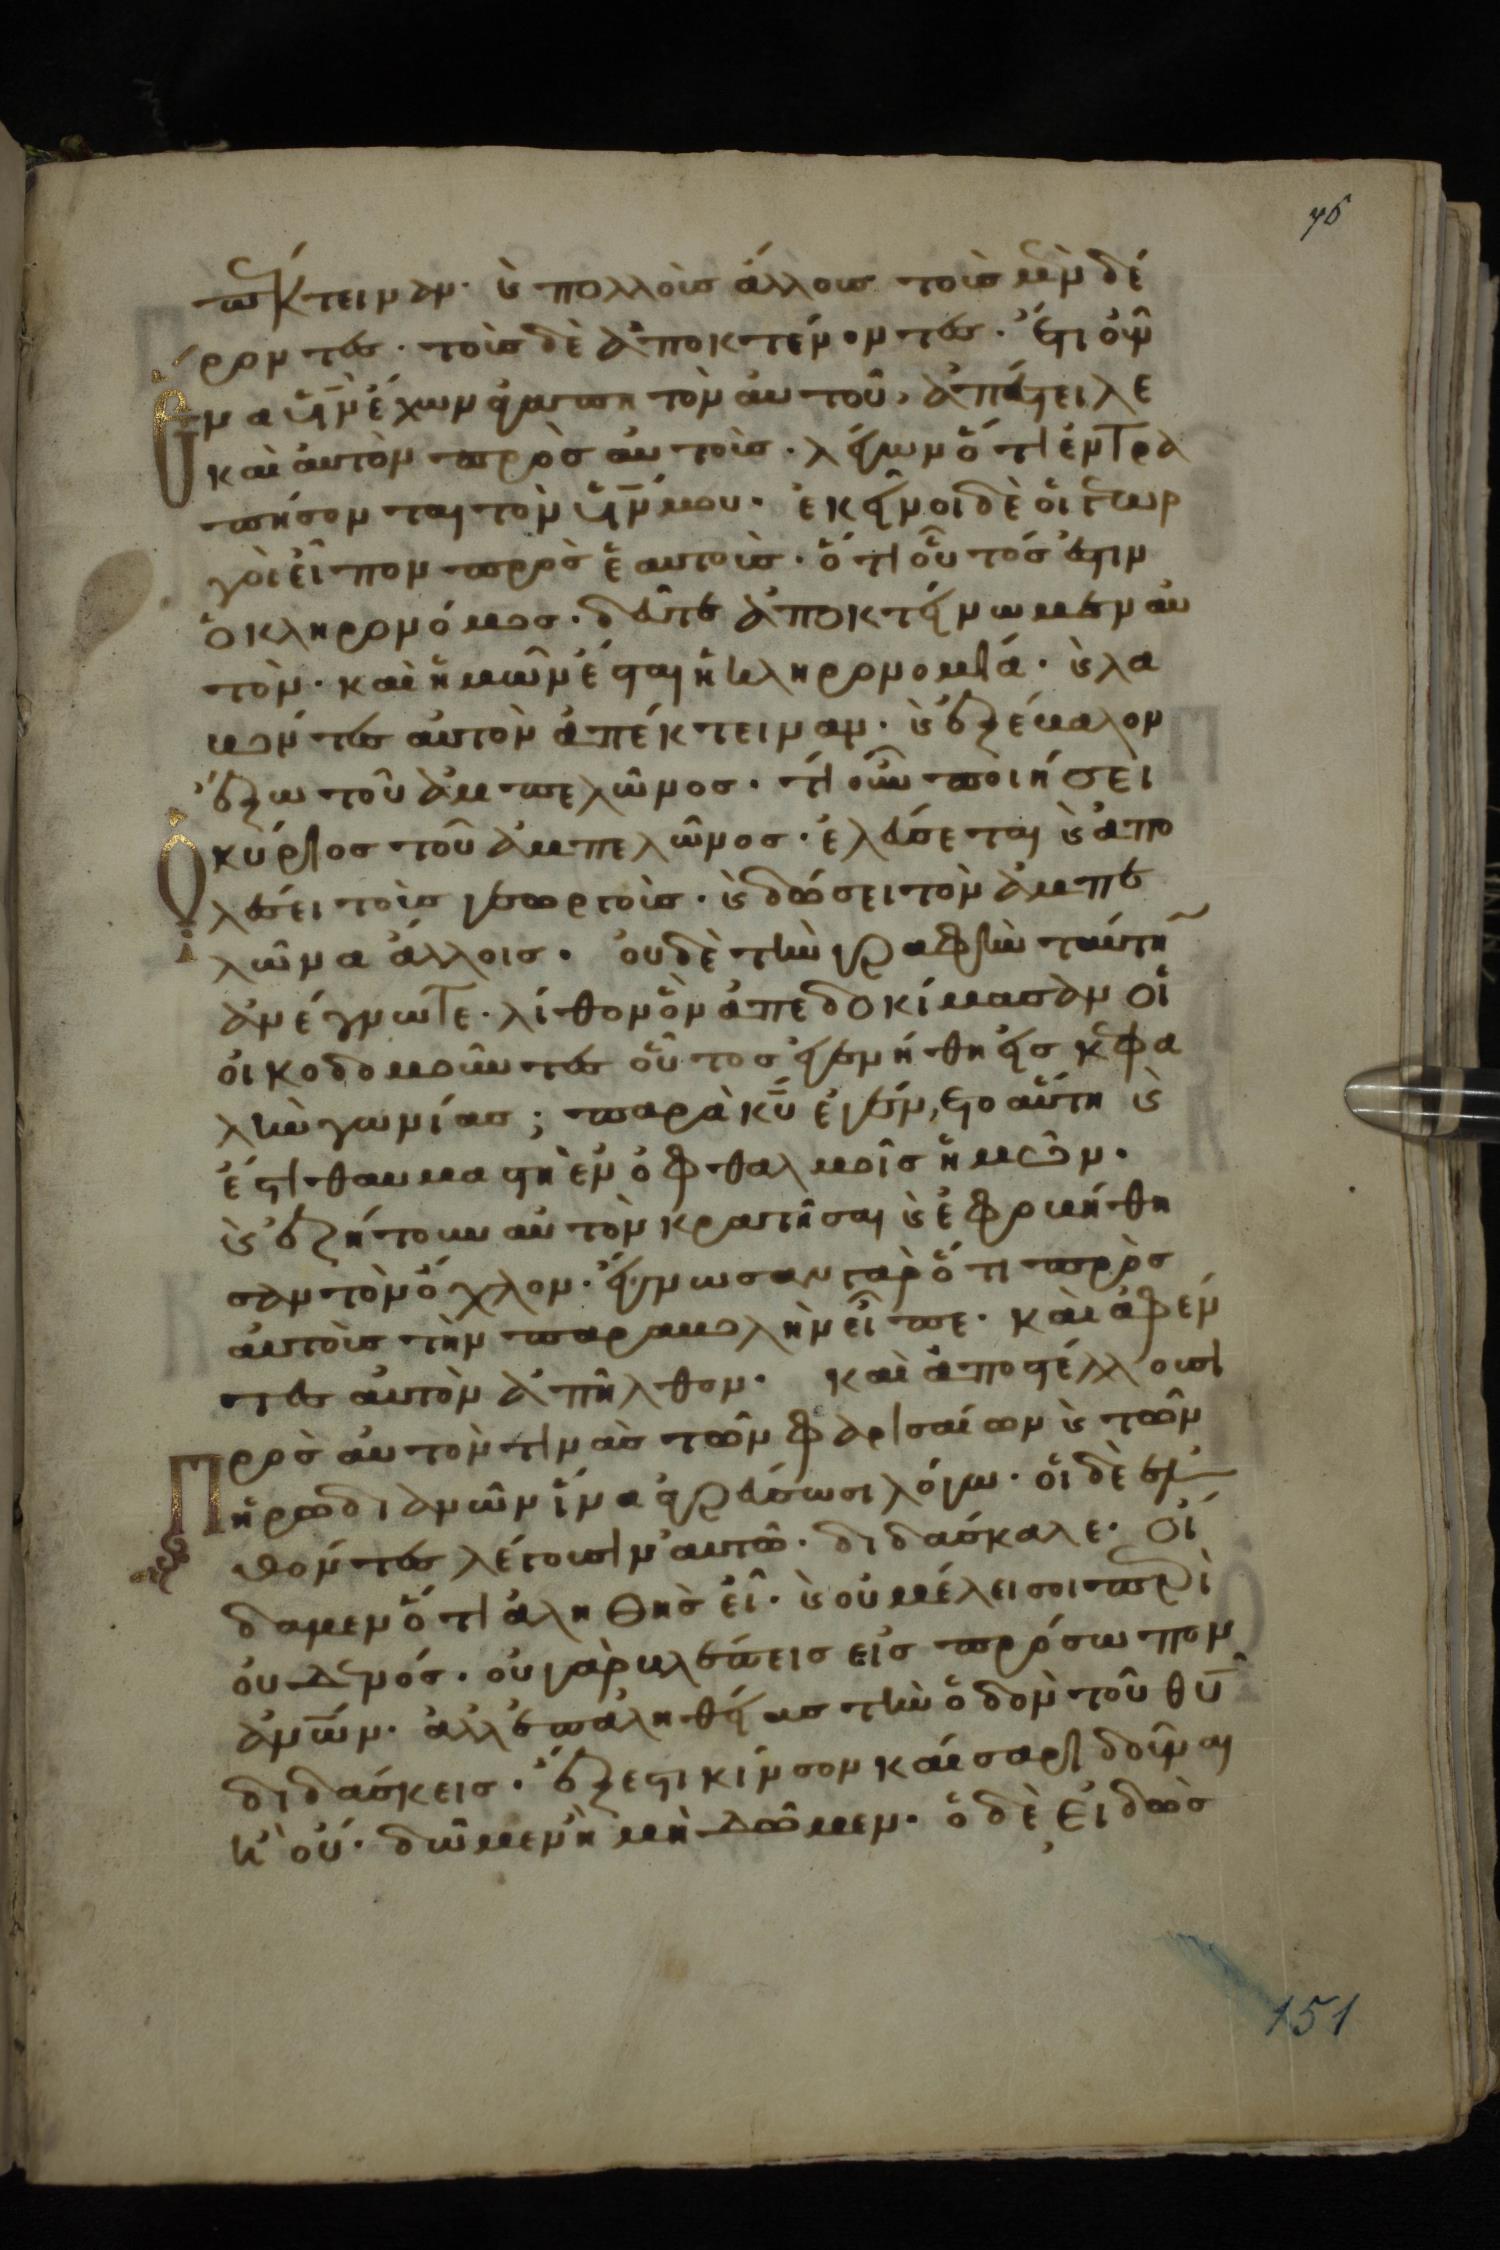 76
πέκτειναν. καὶ πολλοὺς ἄλλους τοὺς μὲν δέ
ροντες. τοὺς δὲ ἀποκτένοντες. ἔτι οὖν
ἕνα υἱὸν ἔχων ἀγαπητὸν αὐτοῦ, ἀπέστειλε
καὶ αὐτὸν πρὸς αὐτοὺς. λέγων ὅτι ἐντρα
πήσονται τὸν υἱόν μου. ἐκεῖνοι δὲ οἱ γεωρ
γοὶ εἶπον πρὸς ἑαυτοὺς. ὅτι οὗτός ἐστιν
ὁ κληρονόμος. δεῦτε ἀποκτείνωμεν αὐ
τὸν. καὶ ἡμῶν ἔσται ἡ κληρονομία. καὶ λα
βόντες αὐτὸν ἀπέκτειναν. καὶ ἐξέβαλον
ἔξω τοῦ ἀμπελῶνος. τί οὖν ποιήσει
ὁ κύριος τοῦ ἀμπελῶνος. ἐλεύσεται καὶ ἀπο
λέσει τοὺς γεωργοὺς. καὶ δώσει τὸν ἀμπε
λῶνα ἄλλοις. οὐδὲ τὴν γραφὴν ταύτην
ἀνέγνωτε. λίθον ὃν ἀπεδοκίμασαν οἱ
οἰκοδομοῦντες οὗτος ἐγενήθη εἰς κεφα
λὴν γωνίας; παρὰ κυ ἐγένετο αὕτη καὶ
ἔστι θαυμαστὴ ἐν ὀφθαλμοῖς ἡμῶν.
καὶ ἐζήτουν αὐτὸν κρατῆσαι καὶ ἐφοβήθη
σαν τὸν ὄχλον. ἔγνωσαν γὰρ ὅτι πρὸς
αὐτοὺς τὴν παραβολὴν εἶπε. καὶ ἀφέν
τες αὐτὸν ἀπῆλθον. καὶ ἀποστέλλουσι
πρὸς αὐτὸν τινὰς τῶν φαρισαίων καὶ τῶν
ἡρωδιανῶν ἵνα ἀγρεύσωσι λόγω. οἱ δὲ ἐλ
θόντες λέγουσιν αὐτῶ. διδάσκαλε. οἴ
δαμεν ὅτι ἀληθὴς εἶ. καὶ οὐ μέλει σοι περὶ
οὐδενός. οὐ γὰρ βλέπεις εἰς πρόσωπον
ἀνων. ἀλλ' ἐπ' ἀληθείας τὴν ὁδὸν τοῦ θυ
διδάσκεις. ἔξεστι κίνσον καίσαρι δοῦναι
ἢ οὐ. δῶμεν ἢ μὴ δῶμεν. ὁ δὲ εἰδὼς
151